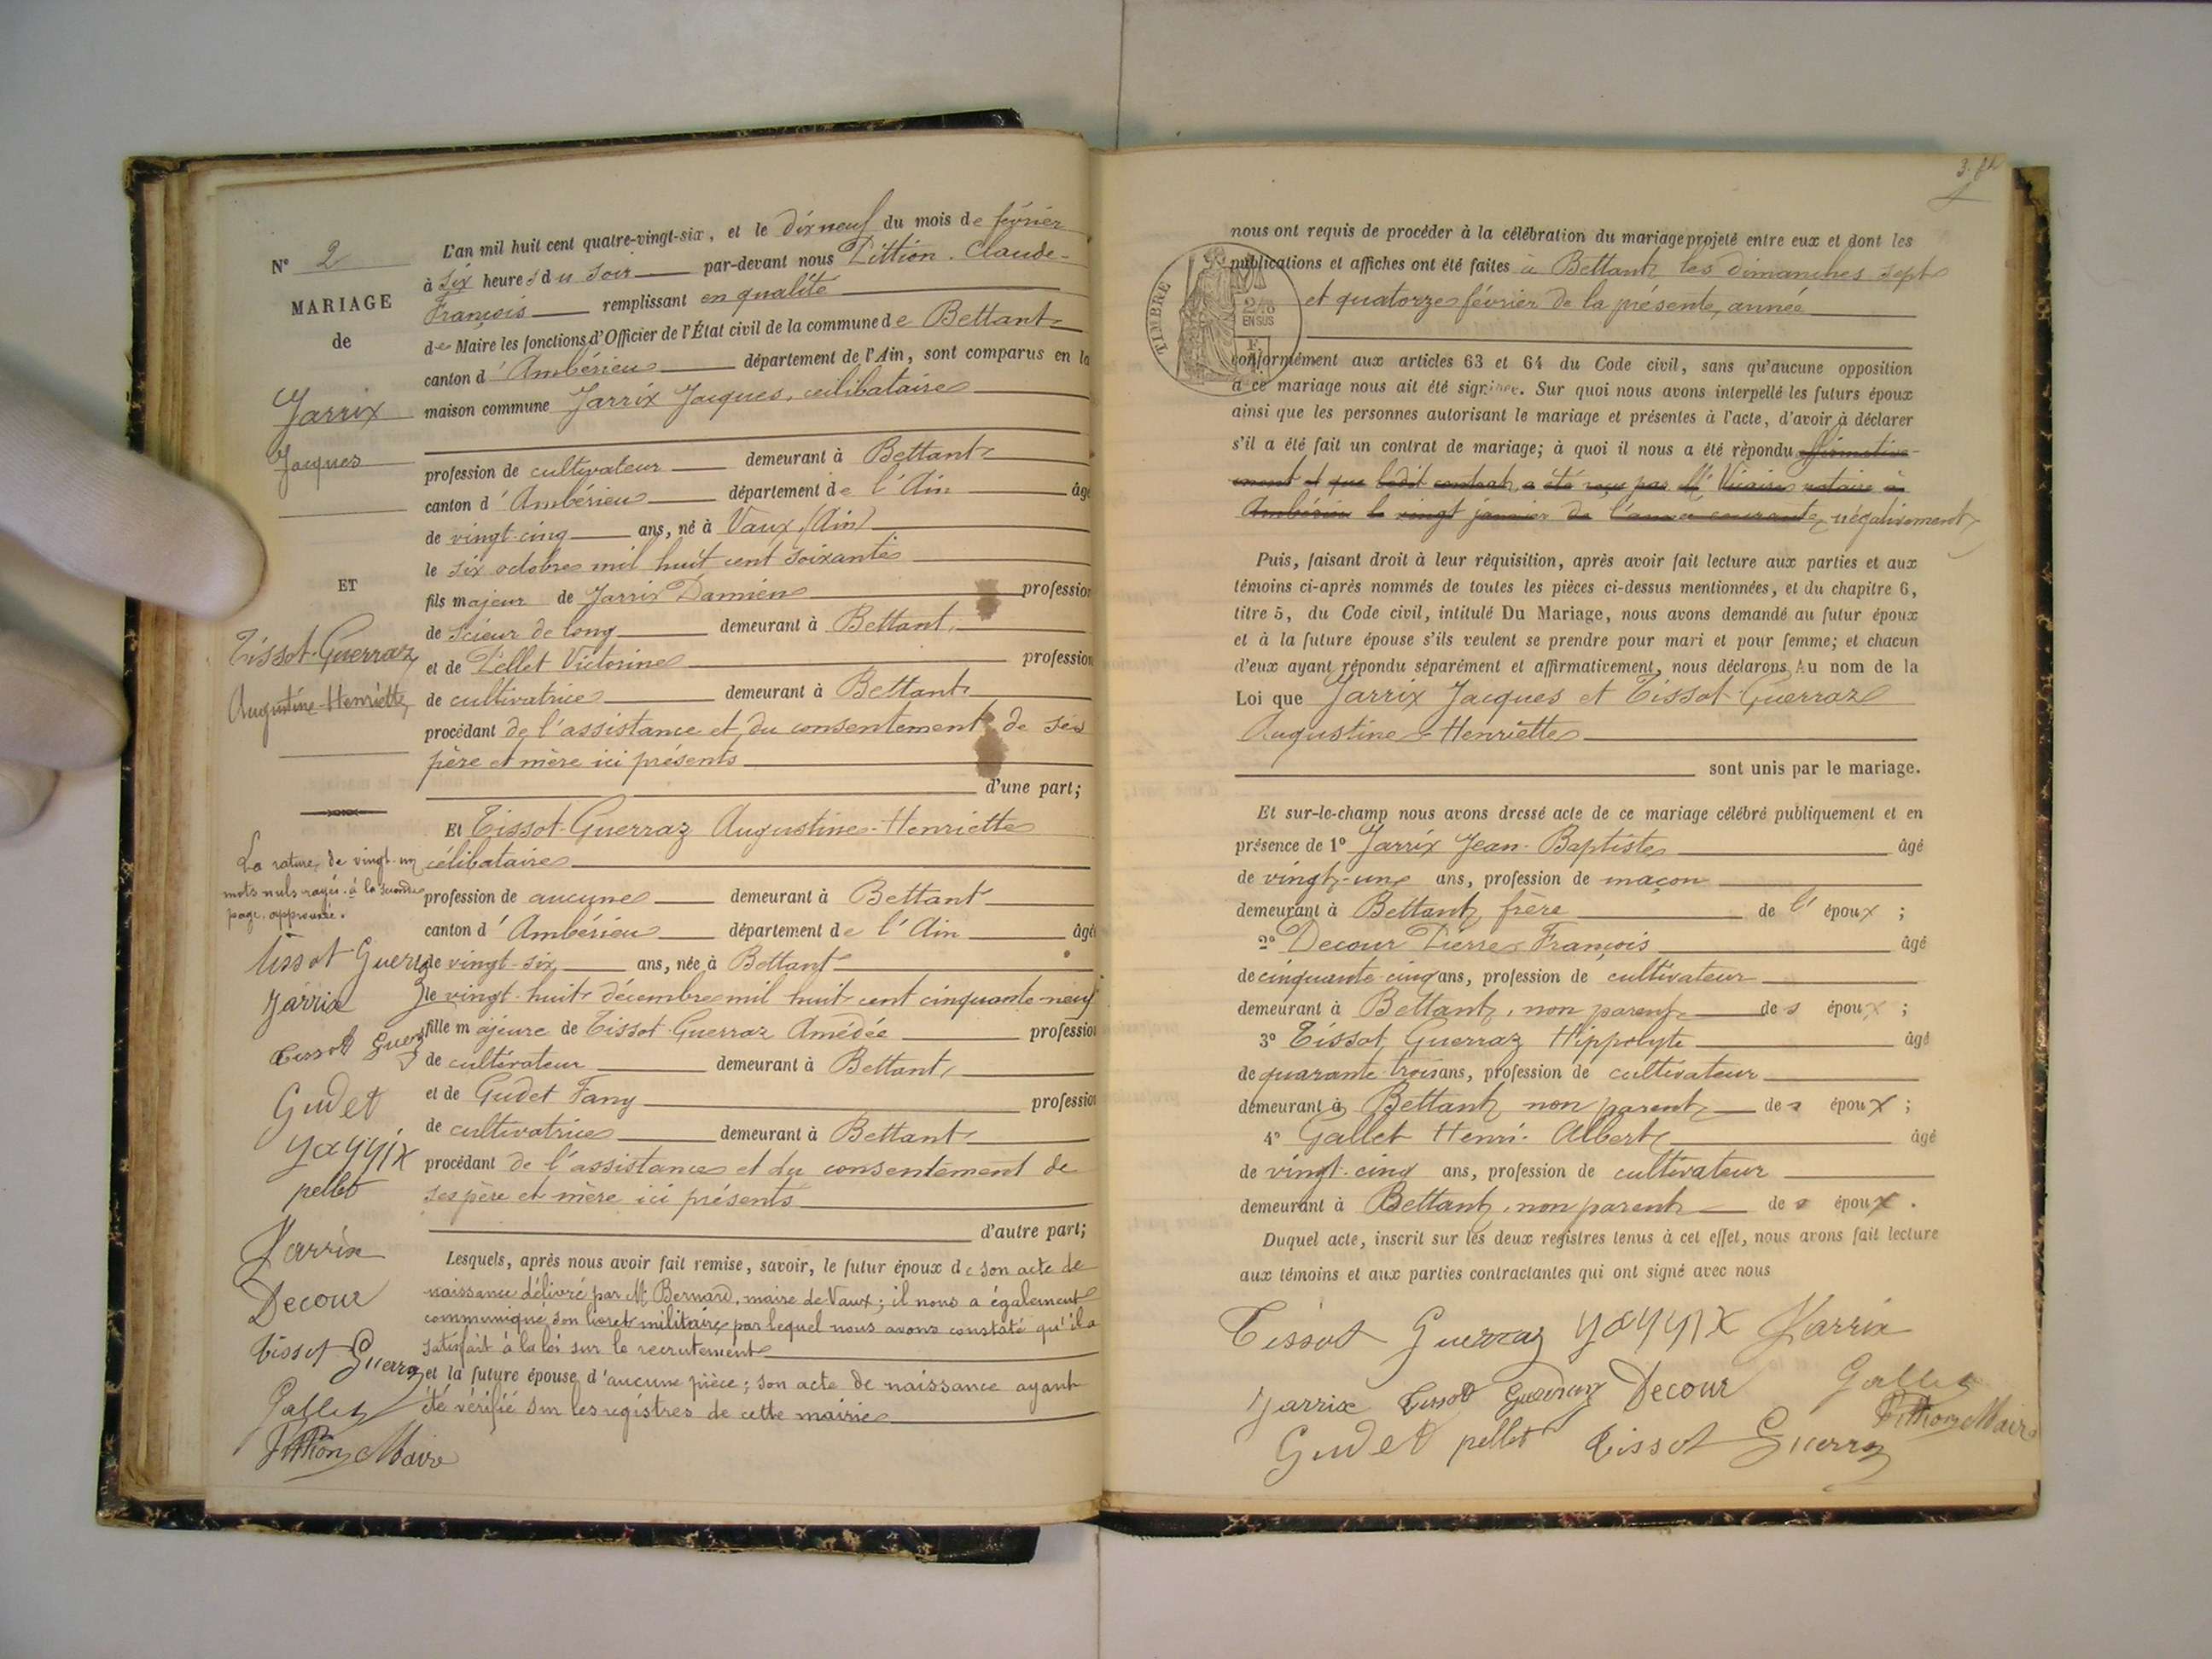 N° 2
MARIAGE
de
Jarrix
Jacques
ET
Tissot-Guerraz
Augustine-Henriette
La rature de vingt-un
mots nuls rayés à la seconde
page, approuvée.
Tissot Guerraz
Jarrix
Tissot Guerraz
Gudet
Jarrix
pellet
Jarrix
Decour
Tissot Guerraz
Gallet
Pittion Maire
L'an mil huit cent quatre-vingt-six, et le dix neuf du mois de février
à six heures du soir par-devant nous Pittion Claude-
François remplissant en qualité
de Maire les fonctions d'Officier de l'État civil de la commune de Bettant
canton d'Ambérieu département de l'Ain, sont comparus en la
maison commune Jarrix Jacques, célibataire
profession de cultivateur demeurant à Bettant
canton d'Ambérieu département de l'Ain âgé
de vingt-cinq ans, né à Vaux (Ain)
le six octobre mil huit cent soixante
fils majeur de Jarrix Damien profession
de scieur de long demeurant à Bettant,
et de Pellet Victorine profession
de cultivatrice demeurant à Bettant
procédant de l'assistance et du consentement de ses
père et mère ici présents
d'une part;
Et Tissot-Guerraz Augustine-Henriette
célibataire
profession de aucune demeurant à Bettant
canton d'Ambérieu département de l'Ain âgée
de vingt-six ans, née à Bettant
le vingt-huit décembre mil huit cent cinquante-neuf
fille majeure de Tissot-Guerraz Amédée profession
de cultivateur demeurant à Bettant,
et de Gudet Fany profession
de cultivatrice demeurant à Bettant
procédant de l'assistance et du consentement de
ses père et mère ici présents
d'autre part;
Lesquels, après nous avoir fait remise, savoir, le futur époux de son acte de
naissance délivré par M. Bernard, maire de Vaux; il nous a également
communiqué son livret militaire par lequel nous avons constaté qu'il a
satisfait à la loi sur le recrutement
et la future épouse d'aucune pièce; son acte de naissance ayant
été vérifié sur les registres de cette mairie
nous ont requis de procéder à la célébration du mariage projeté entre eux et dont les
publications et affiches ont été faites à Bettant les dimanches sept
et quatorze février de la présente année
TIMBRE
EN SUS
conformément aux articles 63 et 64 du Code civil, sans qu'aucune opposition
à ce mariage nous ait été signifiée. Sur quoi nous avons interpellé les futurs époux
ainsi que les personnes autorisant le mariage et présentes à l'acte, d'avoir à déclarer
s'il a été fait un contrat de mariage; à quoi il nous a été répondu affirmative-
ment et que ledit contrat a été reçu par Me Vicaire notaire à
Ambérieu le vingt janvier de l'année courante, négativement
Puis, faisant droit à leur réquisition, après avoir fait lecture aux parties et aux
témoins ci-après nommés de toutes les pièces ci-dessus mentionnées, et du chapitre 6,
titre 5, du Code civil, intitulé Du Mariage, nous avons demandé au futur époux
et à la future épouse s'ils veulent se prendre pour mari et pour femme; et chacun
d'eux ayant répondu séparément et affirmativement, nous déclarons Au nom de la
Loi que Jarrix Jacques et Tissot-Guerraz
Augustine-Henriette
sont unis par le mariage.
Et sur-le-champ nous avons dressé acte de ce mariage célébré publiquement et en
présence de 1° Jarrix Jean-Baptiste âgé
de vingt-un ans, profession de maçon
demeurant à Bettant, frère de l'époux;
2° Decour Pierre François âgé
de cinquante-cinq ans, profession de cultivateur
demeurant à Bettant, non parent des époux;
3° Tissot Guerraz Hippolyte âgé
de quarante-trois ans, profession de cultivateur
demeurant à Bettant, non parent des époux;
4° Gallet Henri-Albert âgé
de vingt-cinq ans, profession de cultivateur
demeurant à Bettant, non parent des époux.
Duquel acte, inscrit sur les deux registres tenus à cet effet, nous avons fait lecture
aux témoins et aux parties contractantes qui ont signé avec nous
Tissot Guerraz Jarrix Jarrix
Jarrix Tissot Guerraz Decour Gallet
Gudet pellet Tissot Guerraz Pittion Maire